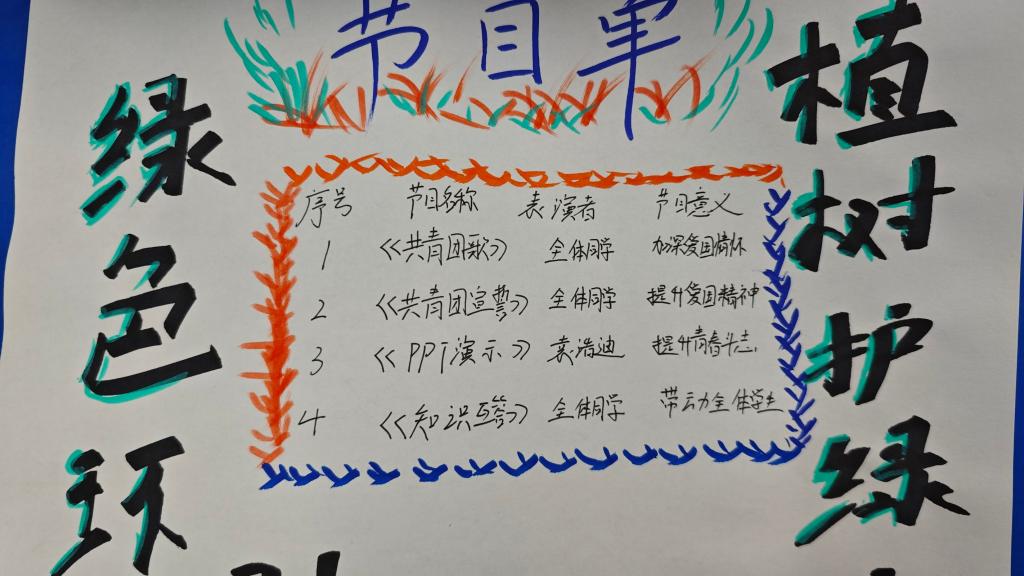 节目单
绿色环
植树护绿
序号 节目名称 表演者 节目意义
1 《共青团歌》 全体同学 加深爱国情怀
2 《共青团宣誓》 全体同学 提升爱国精神
3 《PPT演示》 袁浩迪 提升青春斗志
4 《知识互答》 全体同学 带动全体学生